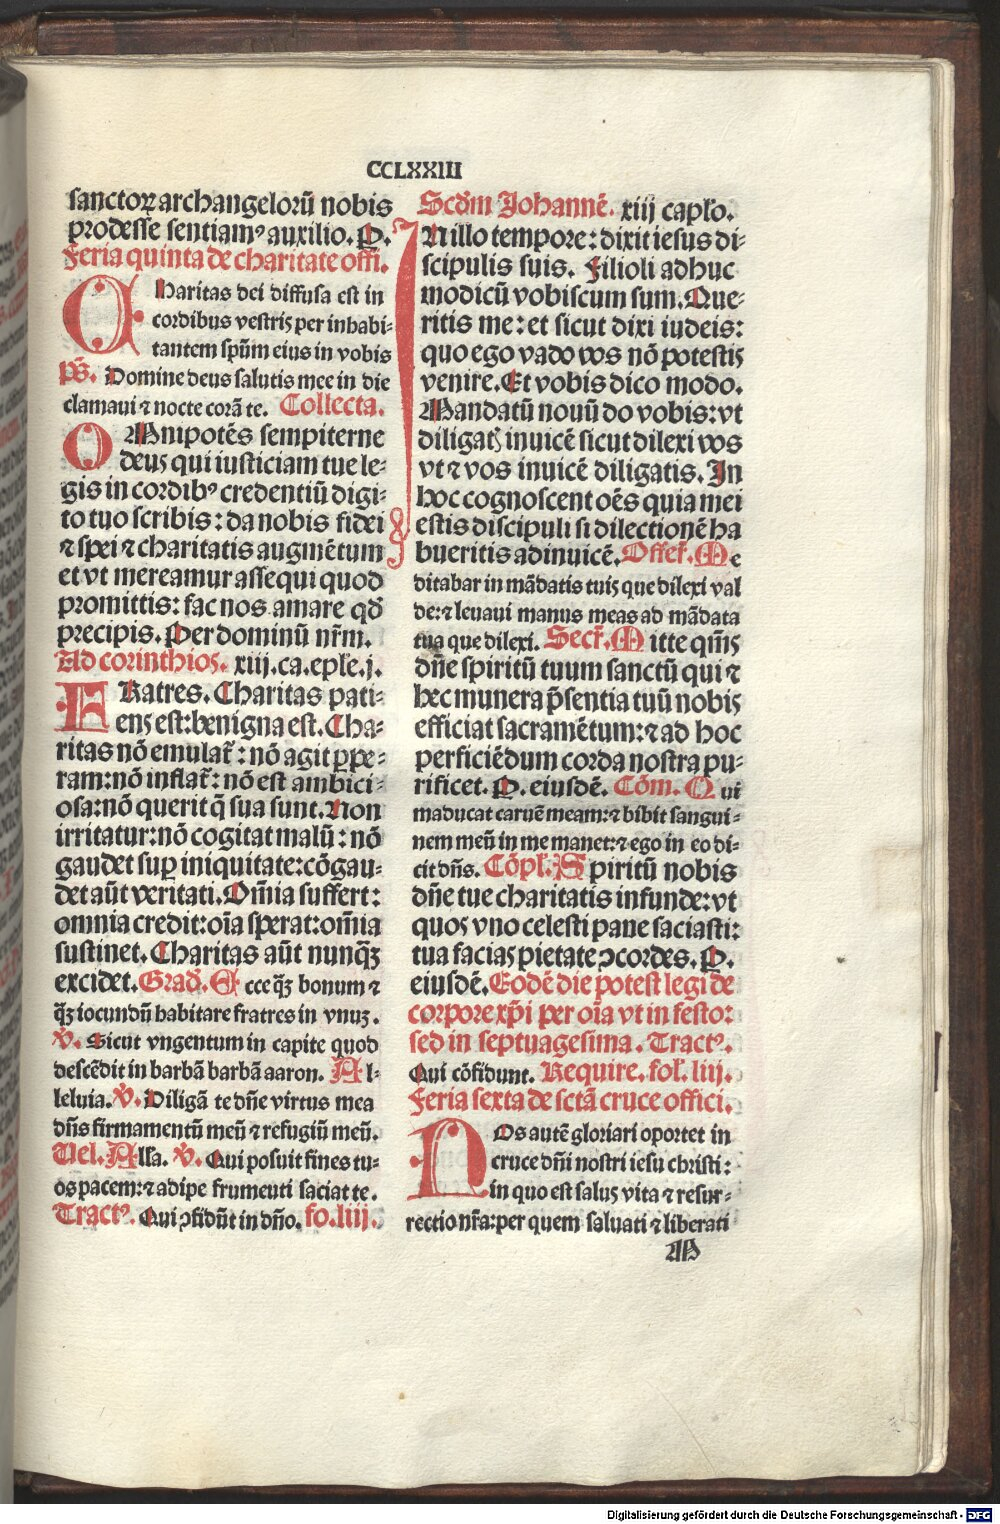 CCLXXIII
sanctoꝝ archangelorū nobis
prodesse sentiamꝰ auxilio. P.
Feria quinta de charitate offi.
Charitas dei diffusa est in
cordibus vestris per inhabi-
tantem spūm eius in vobis
pṡ. Domine deus salutis mee in die
clamaui ⁊ nocte corā te. Collecta.
OMnipotēs sempiterne
deus qui iusticiam tue le-
gis in cordibꝰ credentiū digi-
to tuo scribis: da nobis fidei
⁊ spei ⁊ charitatis augmētum
et vt mereamur assequi quod
promittis: fac nos amare qḋ
precipis. Per dominū nr̄m.
Ad corinthios. xiij. ca. epl̄e. j.
FRatres. Charitas pati-
ens est: benigna est. Cha-
ritas nō emulat̄: nō agit ꝑpe-
ram: nō inflat̄: nō est ambici-
osa: nō querit q̄ sua sunt. Non
irritatur: nō cogitat malū: nō
gaudet suꝑ iniquitate: cōgau-
det aūt veritati. Om̄ia suffert:
omnia credit: oīa sperat: om̄ia
sustinet. Charitas aūt nunq̄ꝫ
excidet. Grad̄. Ecce q̄ꝫ bonum ⁊
q̄ꝫ iocundū habitare fratres in vnuꝫ.
℣. Sicut vngentum in capite quod
descēdit in barbā barbā aaron. Al-
leluia. ℣. Diligā te dn̄e virtus mea
dn̄s firmamentū meū ⁊ refugiū meū.
Uel. All'a. ℣. Qui posuit fines tu-
os pacem: ⁊ adipe frumenti saciat te.
Tractꝰ. Qui ꝯfidūt in dn̄o. fo. liij.
Scd̄m Johannē. xiij capl̄o.
IN illo tempore: dixit iesus di-
scipulis suis. Filioli adhuc
modicū vobiscum sum. Que-
ritis me: et sicut dixi iudeis:
quo ego vado vos nō potestis
venire. Et vobis dico modo.
Mandatū nouū do vobis: vt
diligatꝭ inuicē sicut dilexi vos
vt ⁊ vos inuicē diligatis. In
hoc cognoscent oēs quia mei
estis discipuli si dilectionē ha
bueritis adinuicē. Offer̄. Me
ditabar in mādatis tuis que dilexi val
de: ⁊ leuaui manus meas ad mādata
tua que dilexi. Secr̄. Mitte qm̄s
dn̄e spiritū tuum sanctū qui ⁊
hec munera p̄sentia tuū nobis
efficiat sacramētum: ⁊ ad hoc
perficiēdum corda nostra pu-
rificet. P. eiusdē. Cōm. Qui
māducat carnē meam: ⁊ bibit sangui-
nem meū in me manet: ⁊ ego in eo di-
cit dn̄s. Cōpl̄. Spiritū nobis
dn̄e tue charitatis infunde: vt
quos vno celesti pane saciasti:
tua facias pietate ꝯcordes. P.
eiusdē. Eodē die potest legi de
corpore xp̄i per oīa vt in festo:
sed in septuagesima. Tractꝰ.
Qui cōfidunt. Require. fol̄. liij.
Feria sexta de sctā cruce offici.
NOs autē gloriari oportet in
cruce dn̄i nostri iesu christi:
in quo est salus vita ⁊ resur-
rectio nr̄a: per quem saluati ⁊ liberati
M
Digitalisierung gefördert durch die Deutsche Forschungsgemeinschaft - DFG